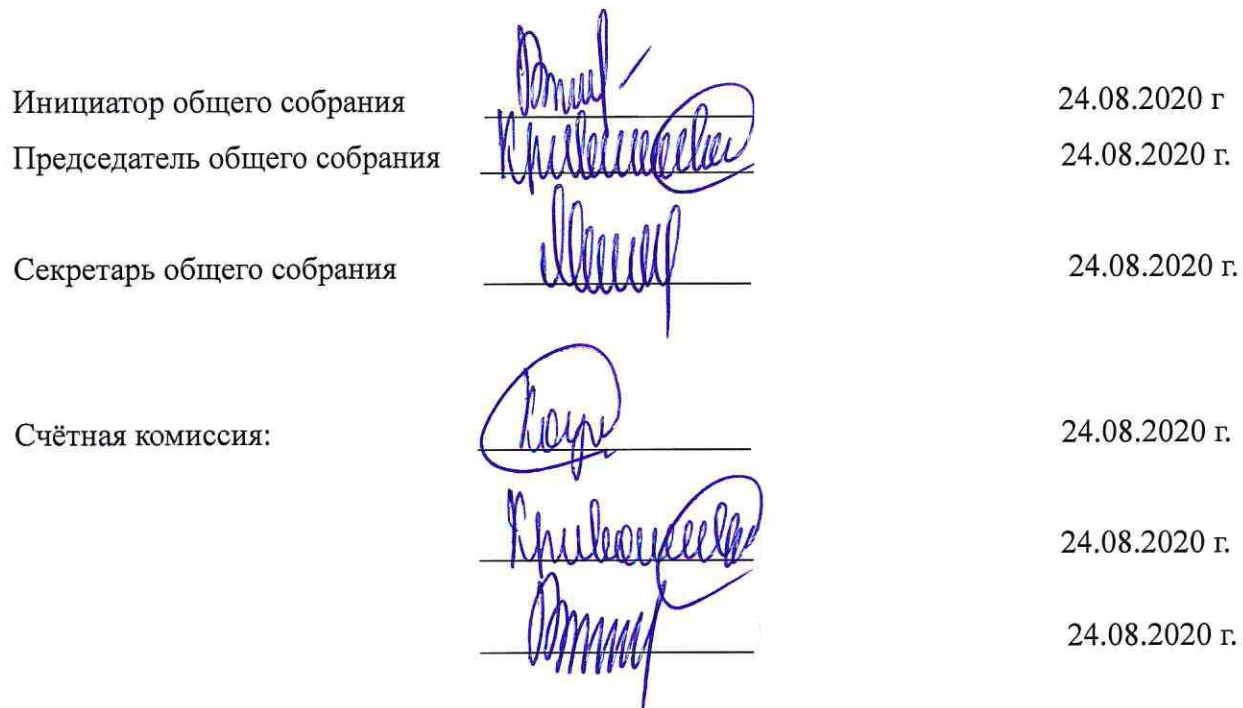 Инициатор общего собрания 24.08.2020 г
Председатель общего собрания 24.08.2020 г.
Секретарь общего собрания 24.08.2020 г.
Счётная комиссия: 24.08.2020 г.
24.08.2020 г.
24.08.2020 г.